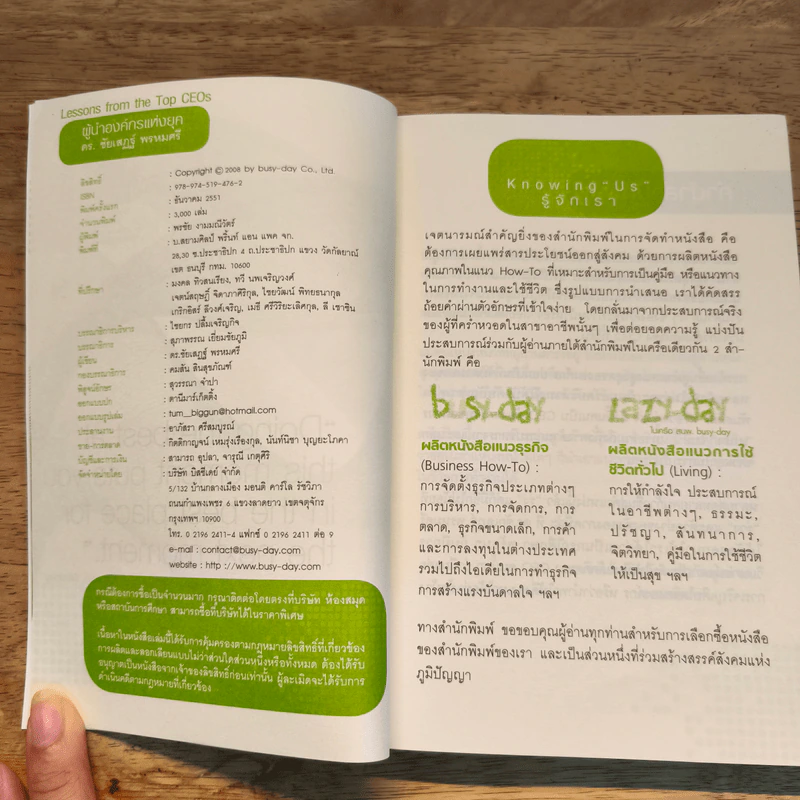 Lessons from the Top CEOs
ผู้นำองค์กรแห่งยุค
ดร. ชัยเสฏฐ์ พรหมศรี
ลิขสิทธิ์ : Copyright © 2008 by busy-day Co., Ltd.
ISBN : 978-974-519-476-2
พิมพ์ครั้งแรก : ธันวาคม 2551
จำนวนพิมพ์ : 3,000 เล่ม
ผู้พิมพ์ : พรชัย งามมณีวัตร์
พิมพ์ที่ : บ.สยามศิลป์ พริ้นท์ แอน แพค จก.
28,30 ซ.ประชาธิปก 4 ถ.ประชาธิปก แขวง วัดกัลยาณ์
เขต ธนบุรี กทม. 10600
ที่ปรึกษา : มงคล ทิวสนเรียง, ทวี นพเจริญวงศ์
เจตน์สฤษฎิ์ จิดาภาศิริกุล, ไชยวัฒน์ พิทยธนากุล
เกริกอิสร์ ลีวงศ์เจริญ, เมธี ศรีวิริยะเลิศกุล, ลี เซาซิน
บรรณาธิการบริหาร : ไชยกร ปลื้มเจริญกิจ
บรรณาธิการ : สุภาพรรณ เยี่ยมชัยภูมิ
ผู้เขียน : ดร.ชัยเสฏฐ์ พรหมศรี
กองบรรณาธิการ : คมสัน สินสุขภัณฑ์
พิสูจน์อักษร : สุวรรณา จำปา
ออกแบบปก : ดานีมาร์เก็ตติ้ง
ออกแบบรูปเล่ม : tum_biggun@hotmail.com
ประสานงาน : อาภัสรา ศรีสมบูรณ์
ขาย-การตลาด : กิตติกาญจน์ เหมรุ่งเรืองกุล, นันท์นิชา บุญยะโภคา
บัญชีและการเงิน : สามารถ อุปลา, จารุณี เกตุศิริ
จัดจำหน่ายโดย : บริษัท บิสซี่เดย์ จำกัด
5/132 บ้านกลางเมือง มอนติ คาร์โล รัชวิภา
ถนนกำแพงเพชร 6 แขวงลาดยาว เขตจตุจักร
กรุงเทพฯ 10900
โทร. 0 2196 2411-4 แฟกซ์ 0 2196 2411 ต่อ 9
e-mail : contact@busy-day.com
website : http ://www.busy-day.com
กรณีต้องการซื้อเป็นจำนวนมาก กรุณาติดต่อโดยตรงที่บริษัท ห้องสมุด
หรือสถาบันการศึกษา สามารถซื้อที่บริษัทได้ในราคาพิเศษ
เนื้อหาในหนังสือเล่มนี้ได้รับการคุ้มครองตามกฎหมายลิขสิทธิ์ที่เกี่ยวข้อง
การผลิตและลอกเลียนแบบไม่ว่าส่วนใดส่วนหนึ่งหรือทั้งหมด ต้องได้รับ
อนุญาตเป็นหนังสือจากเจ้าของลิขสิทธิ์ก่อนเท่านั้น ผู้ละเมิดจะได้รับการ
ดำเนินคดีตามกฎหมายที่เกี่ยวข้อง
Knowing "Us"
รู้จักเรา
เจตนารมณ์สำคัญยิ่งของสำนักพิมพ์ในการจัดทำหนังสือ คือ
ต้องการเผยแพร่สารประโยชน์ออกสู่สังคม ด้วยการผลิตหนังสือ
คุณภาพในแนว How-To ที่เหมาะสำหรับการเป็นคู่มือ หรือแนวทาง
ในการทำงานและใช้ชีวิต ซึ่งรูปแบบการนำเสนอ เราได้คัดสรร
ถ้อยคำผ่านตัวอักษรที่เข้าใจง่าย โดยกลั่นมาจากประสบการณ์จริง
ของผู้ที่คร่ำหวอดในสาขาอาชีพนั้นๆ เพื่อต่อยอดความรู้ แบ่งปัน
ประสบการณ์ร่วมกับผู้อ่านภายใต้สำนักพิมพ์ในเครือเดียวกัน 2 สำ-
นักพิมพ์ คือ
busy-day
ผลิตหนังสือแนวธุรกิจ
(Business How-To) :
การจัดตั้งธุรกิจประเภทต่างๆ
การบริหาร, การจัดการ, การ
ตลาด, ธุรกิจขนาดเล็ก, การค้า
และการลงทุนในต่างประเทศ
รวมไปถึงไอเดียในการทำธุรกิจ
การสร้างแรงบันดาลใจ ฯลฯ
Lazy-day
ในเครือ สนพ. busy-day
ผลิตหนังสือแนวการใช้
ชีวิตทั่วไป (Living) :
การให้กำลังใจ ประสบการณ์
ในอาชีพต่างๆ, ธรรมะ,
ปรัชญา, สันทนาการ,
จิตวิทยา, คู่มือในการใช้ชีวิต
ให้เป็นสุข ฯลฯ
ทางสำนักพิมพ์ ขอขอบคุณผู้อ่านทุกท่านสำหรับการเลือกซื้อหนังสือ
ของสำนักพิมพ์ของเรา และเป็นส่วนหนึ่งที่ร่วมสร้างสรรค์สังคมแห่ง
ภูมิปัญญา